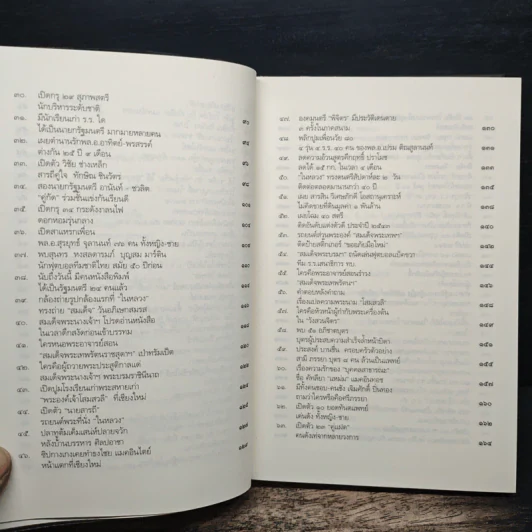 ๓๐. เปิดกรุ ๒๙ สุภาพสตรี
นักบริหารระดับชาติ ๙๐
๓๑. มีนักเรียนเก่า ร.ร. ใด
ได้เป็นนายกรัฐมนตรี มากมายหลายคน
๓๒. เผยตำนานรักพล.อ.อาทิตย์-พรสรรค์
ต่างกัน ๒๕ ปี ๙ เดือน
๓๓. เปิดตัว วิชัย ช่างเหล็ก
สารถีคู่ใจ ทักษิณ ชินวัตร
๓๔. สองนายกรัฐมนตรี อานันท์ - ชวลิต
"คู่กัด" ร่วมชั้นแข่งกันเรียนดี
๓๕. เปิดกรุ ๓๔ กระดังงาลนไฟ
ดอกหอมรุ่นกลาง
๓๖. เปิดสาแหรกเพื่อน
พล.อ.สุรยุทธ์ จุลานนท์ ๓๗ คน ทั้งหญิง-ชาย
๓๗. พบสุนทร หงสลดารมภ์ บุญสม มาร์ติน
นักฟุตบอลทีมชาติไทย สมัย ๕๐ ปีก่อน
๓๘. นับถึงวันนี้ มีคนหนังสือพิมพ์
ได้เป็นรัฐมนตรี ๒๔ คนแล้ว
๓๙. กล้องถ่ายรูปกล้องแรกที่ "ในหลวง"
ทรงถ่าย "สมเด็จ" วันอภิเษกสมรส
๔๐. สมเด็จพระนางเจ้าฯ โปรดอ่านหนังสือ
ในเวลาดึกสงัดก่อนเข้าบรรทม
๔๑. ใครหนอพระอาจารย์สอน
"สมเด็จพระเทพรัตนราชสุดาฯ" เป่าทรัมเป็ต
๔๒. ใครคือผู้ถวายพระประสูติกาลแด่
สมเด็จพระนางเจ้าฯ พระบรมราชินีนาถ
๔๓. เปิดปูมโรงเรียนเก่าพระสหายเก่า
"พระองค์เจ้าโสมสวลี" ที่เชียงใหม่
๔๔. เปิดตัว "นายสารถี"
รถยนต์พระที่นั่ง "ในหลวง"
๔๕. ปลาทูต้มเค็มเสน่ห์ปลายจวัก
หลังบ้านบรรหาร ศิลปอาชา
๔๖. ชีปกางเกงเคยทำธงไชย แมคอินไตย์
หน้าแตกที่เชียงใหม่
๔๗. องคมนตรี "พิจิตร" มีประวัติเฉียดตาย
๓ ครั้งในภาคสนาม ๑๓๐
๔๘. พลิกปูมเพื่อนวัย ๘๐
๔ รุ่น ๔ ร.ร. ๔๐ คน ของพล.อ.เปรม ติณสูลานนท์ ๑๓๑
๔๙. ลดความอ้วนสูตรคึกฤทธิ์ ปราโมช
ลดได้ ๑๕ กก. ในเวลา ๔ เดือน ๑๓๓
๕๐. "ในหลวง" ทรงดนตรีสัปดาห์ละ ๒ วัน
ติดต่อตลอดมานานกว่า ๔๐ ปี
๕๑. เผย สารสิน วีระศักดิ์ศรี โอสถานุเคราะห์
ไม่ติดขายที่ดินมูลค่า ๑ พันล้าน
๕๒. เผยโฉม ๔๐ สตรี
ติดอันดับแต่งตัวดี ประจำปี ๒๕๔๓
๕๓. รถยนต์ส่วนพระองค์ "สมเด็จพระเทพฯ"
ติดป้ายสติกเกอร์ "ขออภัยมือใหม่" ๑๔๒
๕๔. "สมเด็จพระบรมฯ" ถนัดเล่นฟุตบอลเป็นขวา
ทีม ร.ร.เสนาธิการ ทบ. ๑๔๔
๕๕. ใครคือพระอาจารย์สอนรำวง
"สมเด็จพระเทพรัตนฯ"
๕๖. คำตอบหลังคำถาม
เรื่องแปลความพระนาม "โสมสวลี" ๑๔๘
๕๗. ใครคือหัวหน้าผู้กำกับพระเครื่องต้น
ใน "วังสวนจิตร" ๑๔๙
๕๘. พบ ๕๑ อภิชาตบุตร
บุตรผู้ประสบความสำเร็จล้ำหน้าบิดา
๕๙. ประสงค์ บานชื่น ครอบครัวตัวอย่าง
สามี ภรรยา บุตร ๘ คน ล้วนเป็นแพทย์ ๑๕๕
๖๐. เรื่องความรักของ "บุคคลสาธารณะ"
ชื่อ ศักสียา "แหม่ม" แมคอินตอช ๑๕๗
๖๑. มีทั้งคนชอบ-คนชัง เฉิมศักดิ์ ปิ่นทอง
ถามว่าใครหรือคือศรีภรรยา ๑๖๐
๖๒. เปิดตัว ๒๐ ยอดทันตแพทย์
เด่นดัง ทั้งหญิง-ชาย ๑๖๒
๖๓. เปิดตัว ๒๓ "คู่แฝด"
คนดังเก่งจากหลายวงการ ๑๖๔